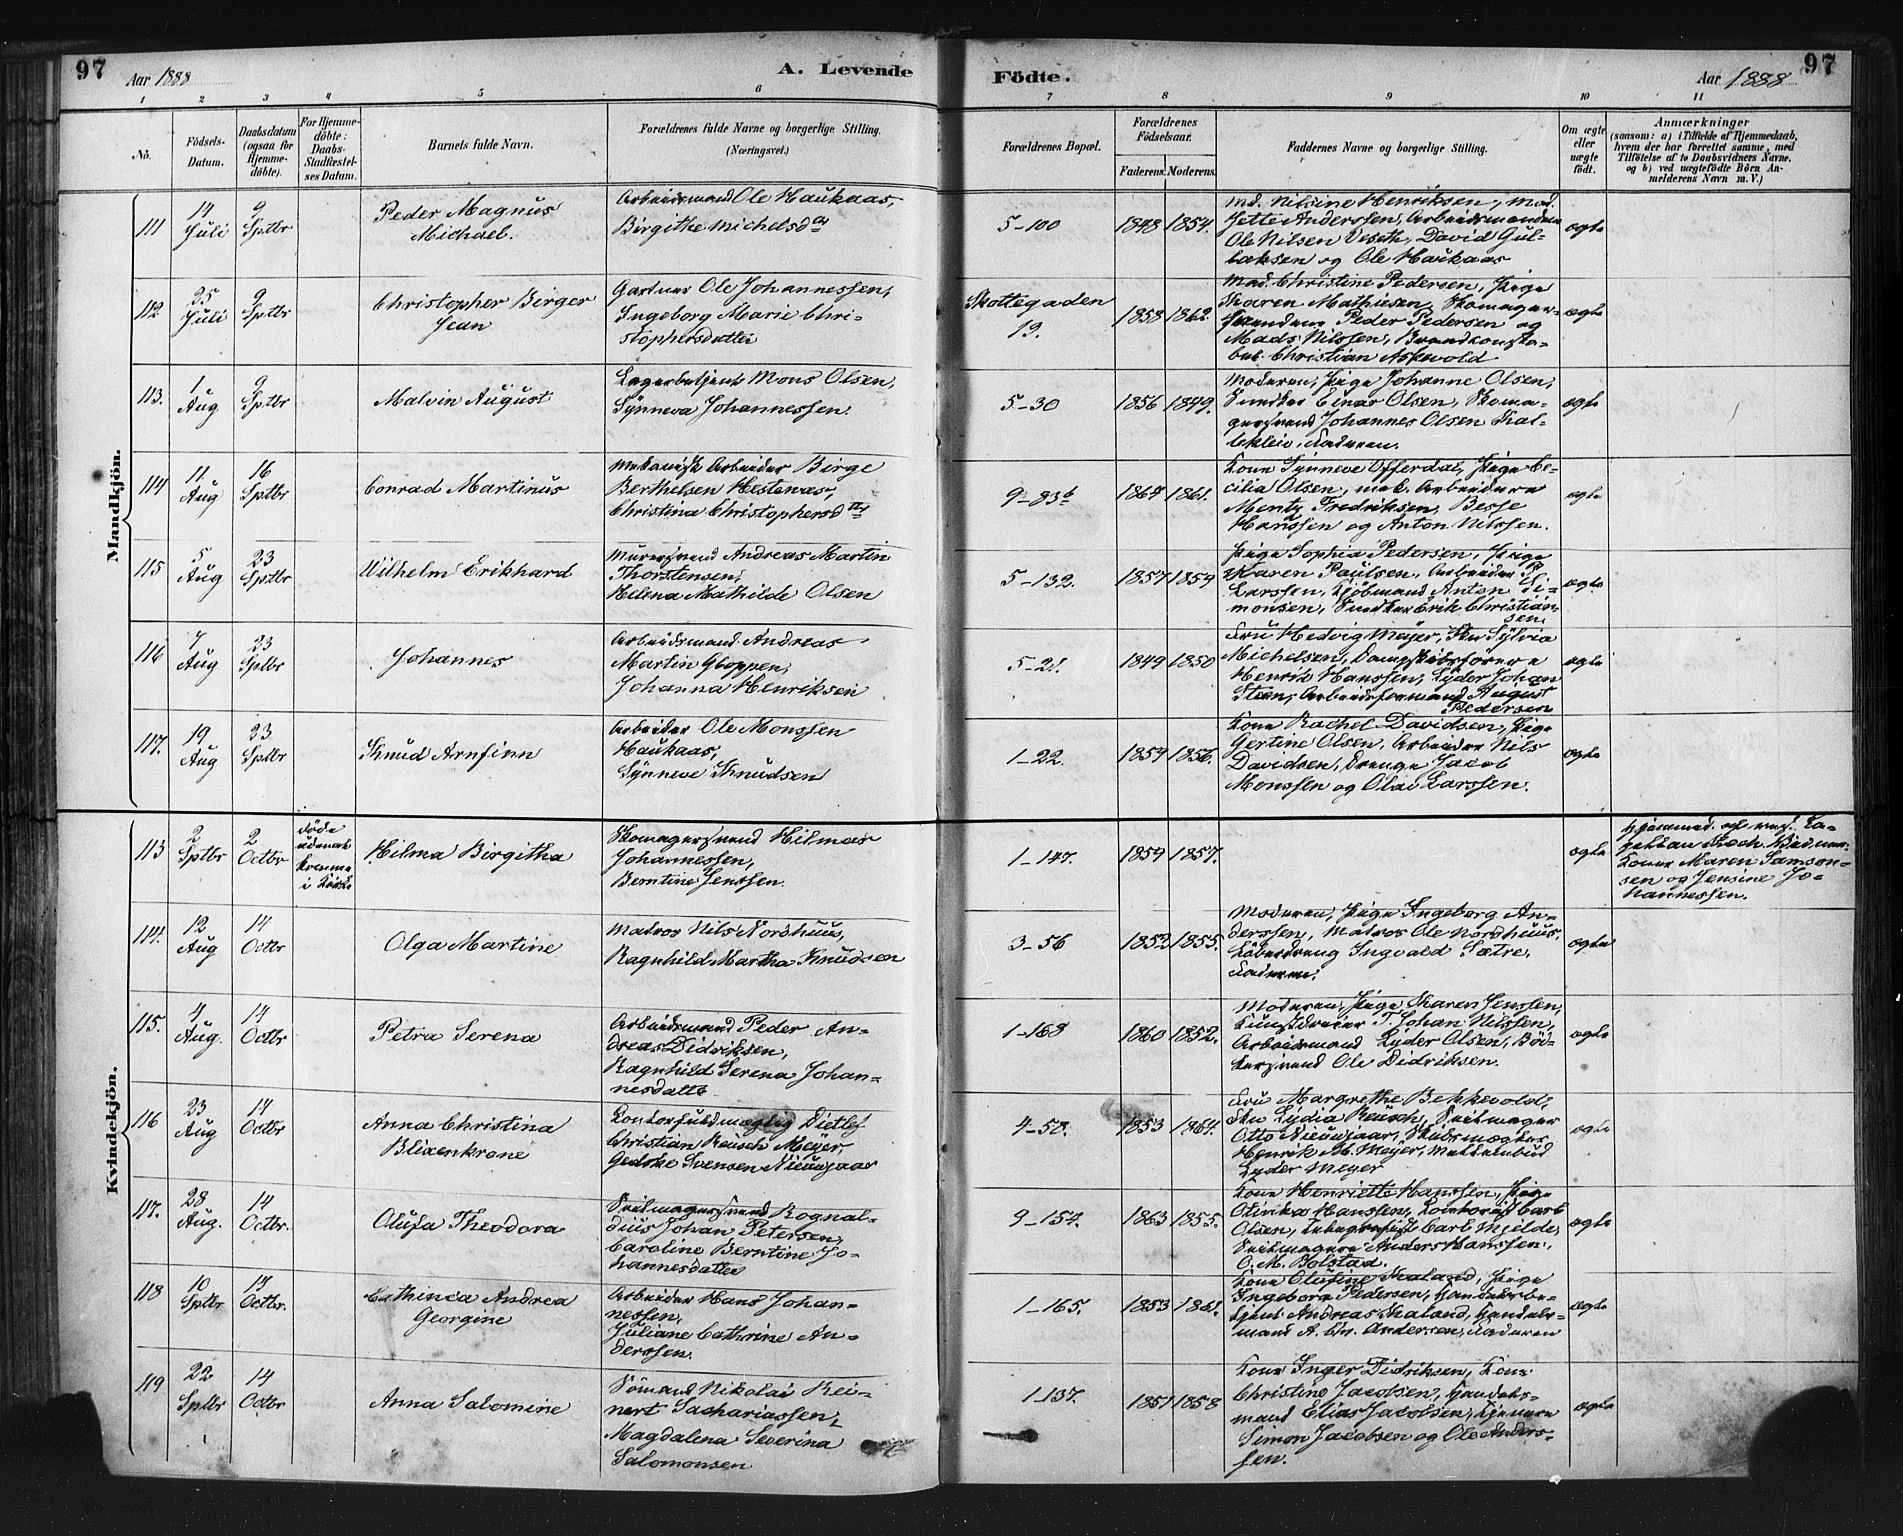 97
Aar 1888
A. Levende
Födte.
Aar 1888
97
1 2 3 4 5 6 7 8 9 10 11
No.
Födsels-Datum.
Daabsdatum (ogsaa for Hjemme-döbte).
For Hjemme-döbte: Daabs-Stadfæstel-ses Datum.
Barnets fulde Navn.
Forældrenes fulde Navne og borgerlige Stilling. (Næringsvei.)
Forældrenes Bopæl.
Forældrenes Födselsaar.
Faderens. Moderens.
Faddernes Navne og borgerlige Stilling.
Om ægte eller uægte födt.
Anmærkninger
(saasom: a) i Tilfælde af Hjemmedaab, hvem der har forrettet samme, med Tilföielse af to Daabsvidners Navne, og b) ved uægtefödte Börn An-melderens Navn m. V.)
Mandkjön.
111
14 Juli
9 Sptbr
Peder Magnus
Michael.
Arbeidsmand Ole Haukaas,
Birgithe Michelsdtr
5-100
1848 1854.
Md. Nilsine Henriksen, Mad.
Jette Anderssen, Arbeidsmændene
Ole Nilsen Veseth, David Gul-
baksen og Ole Haukaas
ægte
112
25 Juli
9 Sptbr
Christopher Birger
Jean
Gartner Ole Johannessen,
Ingeborg Marie Chri-
stophersdatter
Skottegaden
19.
1858 1862.
Mad. Christine Pedersen, Pige
Karen Mathiesen, Skomager-
svendene Peder Pedersen og
Mads Nilssen, Brandkonsta-
bel Christian Askevold
ægte
113.
1 Aug
9 Sptbr
Malvin August
Lagerbetjent Mons Olsen,
Synneva Johannessen.
5-30
1856 1849.
Moderen, Pige Johanne Olsen,
Snedker Einar Olsen, Skoma-
gersvend Johannes Olsen Kal-
lekleiv, Faderen.
ægte
114
11 Aug
16 Sptbr
Conrad Martinus
Mekanisk Arbeider Birge
Berthelsen Hestenæs,
Christina Christophersdtr
9-83b
1864 1861.
Kone Synneve Offerdal, Pige Ce-
cilia Olsen, mek. Arbeidere
Mentz Fredriksen, Besse
Hanssen og Anton Nilssen.
ægte
115
5 Aug
23 Sptbr
Wilhelm Erikhard
Murersvend Andreas Martin
Thorstensen,
Helena Mathilde Olsen
5-132.
1857 1859
Pige Sophia Pedersen, Pige
Karen Paulsen, Arbeider P.
Larssen, Kjöbmand Anton Si-
monsen, Snedker Erik Christian-
sen.
ægte
116
7 Aug
23 Sptbr
Johannes
Arbeidsmand Andreas
Martin Gloppen,
Johanna Henriksen
5-21.
1849 1850
Fru Hedvig Meyer, Frk Sylvia
Michelsen, Dampskibsförere
Henrik Hanssen, Lyder Johan
Steen, Arbeidsformand August
Pedersen
ægte
117.
19 Aug
23 Sptbr
Knud Arnfinn
Arbeider Ole Monssen
Haukaas,
Synneve Knudsen
1-22.
1859 1856.
Kone Rachel Davidsen, Pige
Gertine Olsen, Arbeider Nils
Davidsen, Drenge Jacob
Monssen og Olai Larssen.
ægte
Kvindekjön.
113
2 Sptbr
2 Octbr
döde
udenat
komme
i Kirke
Hilma Birgitha
Skomagersvend Hilmar
Johannessen,
Berntine Jenssen.
1-147.
1859 1857.
ægte
Hjemmed. af resid. Ca-
pellan Koch. Vidner:
Koner Maren Samson-
sen og Jensine Jo-
hannessen.
114.
12 Aug
14 Octbr
Olga Martine
Matros Nils Nordhuus,
Ragnhild Martha Knudsen
3-56
1852 1855.
Moderen, Pige Ingeborg An-
derssen, Matros Ole Nordhuus,
Löbedreng Ingvald Sætre,
Faderen.
ægte
115.
4 Aug.
14 Octbr
Petra Serena
Arbeidsmand Peder An-
dreas Didriksen,
Ragnhild Serena Johan-
nesdatter
1-168
1860 1852.
Moderen, Pige Karen Jenssen,
Kunstdreier T. Johan Nilssen,
Arbeidsmand Lyder Olsen, Böd-
kersvend Ole Didriksen.
ægte
116
23 Aug
14 Octbr
Anna Christina
Blixenkrone
Contorfuldmægtig Ditlef
Christian Reusch Meyer,
Gedske Svensen Nieuwejaar
4-58.
1853 1864.
Fru Margrethe Bekkevold,
Frk Lydia Reusch, Seilmager
Otto Nieuwejaar, Skibsmægler
Henrik M. Meyer,
Lyder Meyer
ægte
117.
28 Aug.
14 Octbr.
Olufa Theodora
Seilmagersvend Rognal-
dius Johan Petersen,
Caroline Berntine Jo-
hannesdatter
9-154.
1863 1855.
Kone Henriette Hanssen, Pige
Olivika Hanssen, Contorist Carl
Olsen, Telegrafist Carl Mjelde,
Seilmagere Anders Hanssen,
O. M. Bolstad.
ægte
118
10 Sptbr
14 Octbr.
Cathinca Andrea
Georgine
Arbeider Hans Johan-
nessen,
Juliane Cathrine An-
derssen.
1-165.
1853 1861.
Kone Olufine Skaland, Pige
Ingeborg Pedersen, Handelsbe-
tjent Andreas Skaland, Handels-
mand A. Chr. Andersen, Faderen
ægte
119
22 Sptbr
14 Octbr
Anna Salomine
Sömand Nikolai Rei-
nert Sachariassen,
Magdalena Severina
Salomonsen
1-137.
1851 1858
Kone Inger Didriksen, Kone
Christine Jacobsen, Handels-
mand Elias Jacobsen,
Simon Jacobsen og Ole Anders-
sen.
ægte